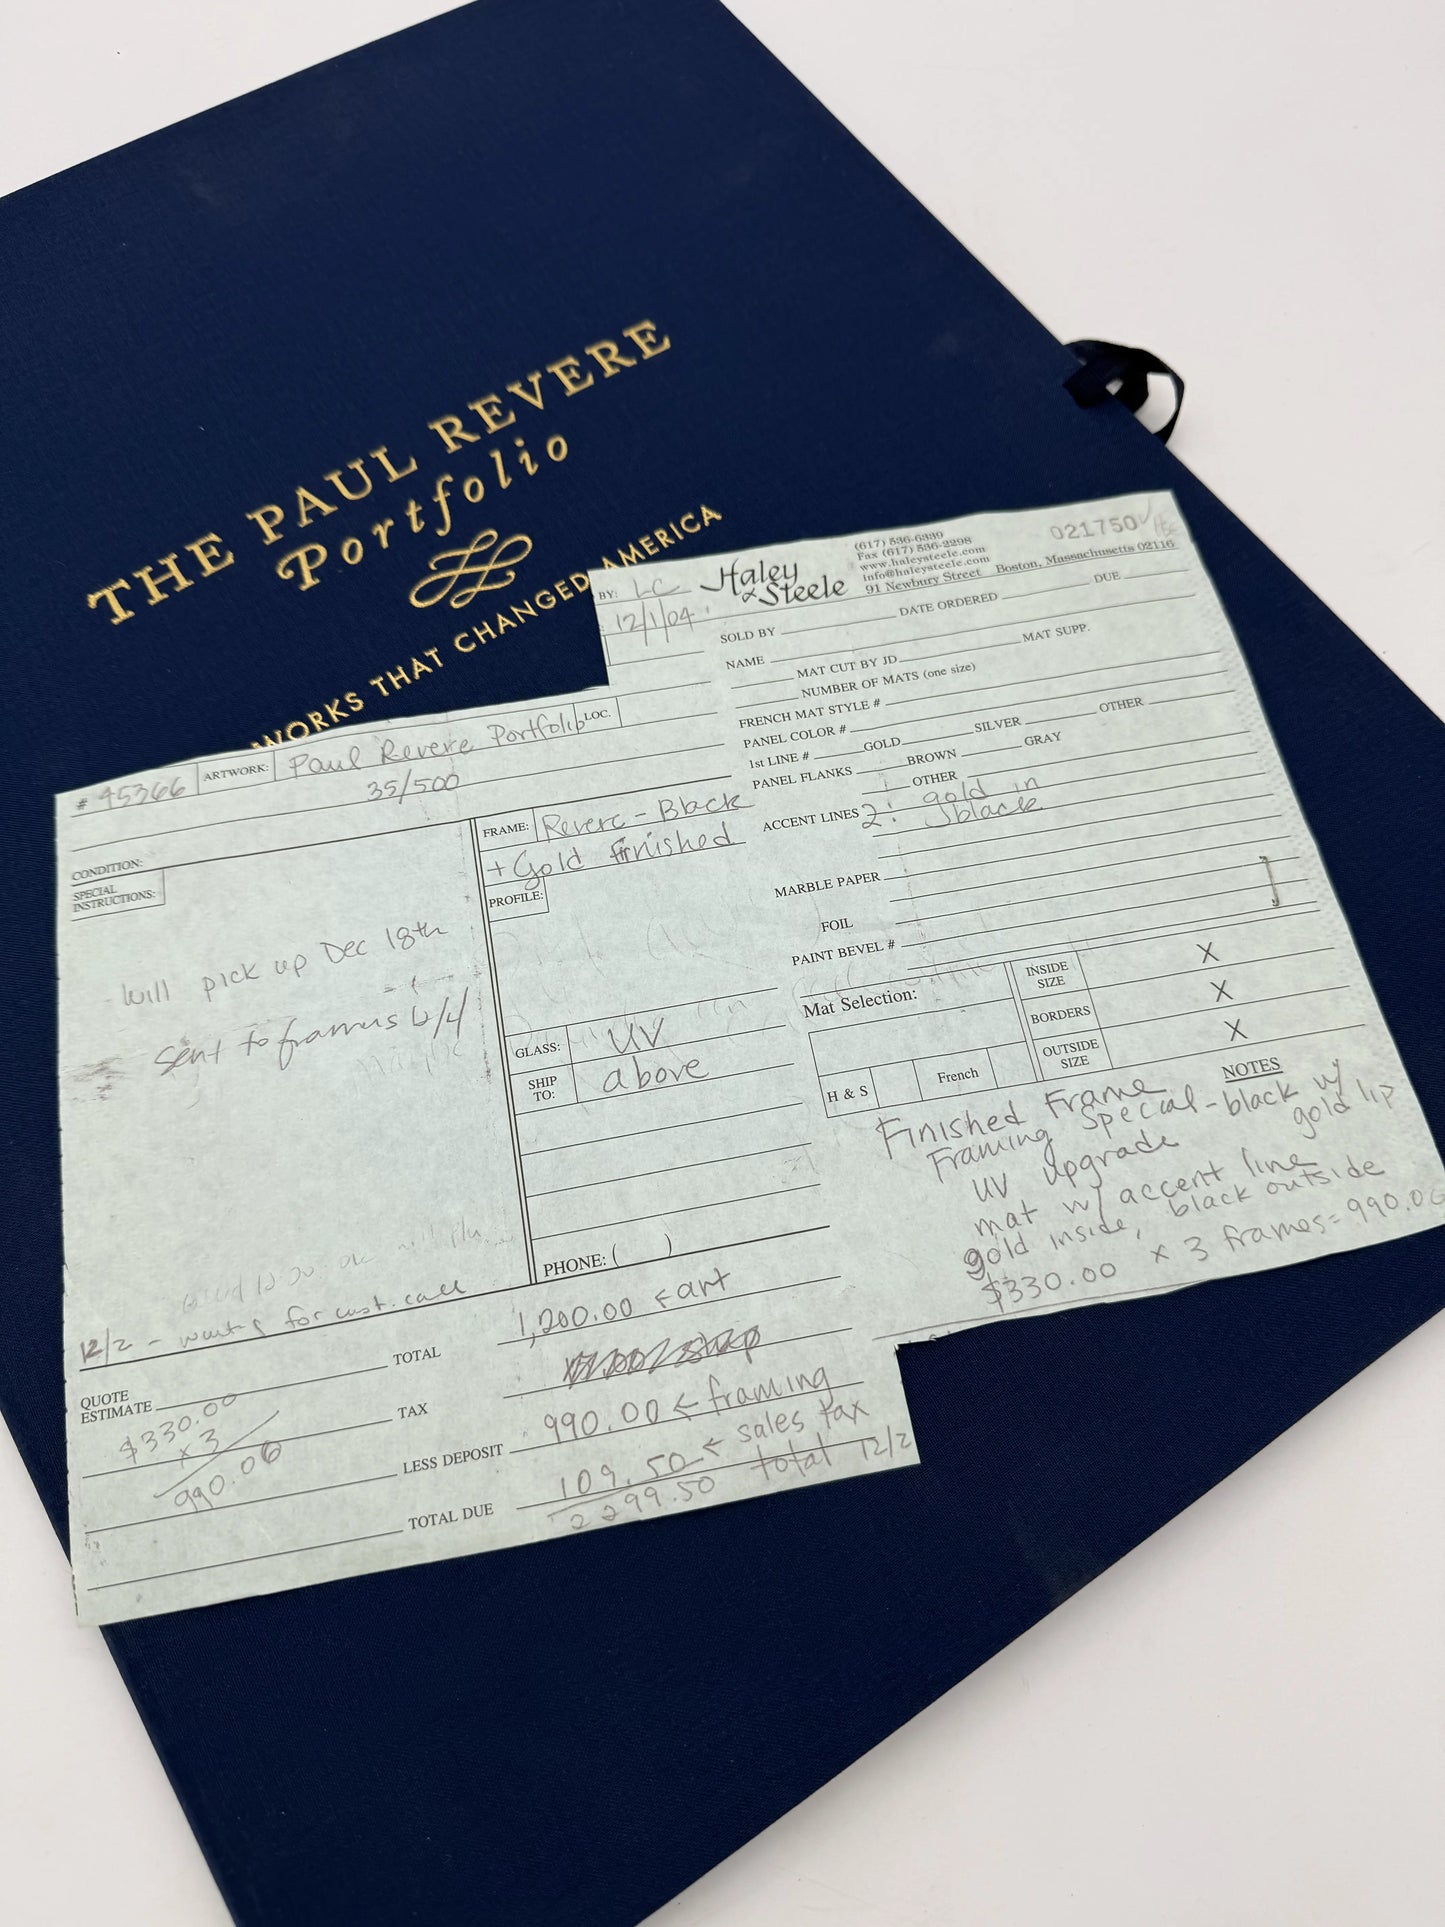 THE PAUL REVERE
Portfolio
WORKS THAT CHANGED AMERICA
BY: LC
12/1/04
Haley & Steele
(617) 536-6339
Fax (617) 536-2298
www.haleysteele.com
info@haleysteele.com
91 Newbury Street Boston, Massachusetts 02116
021750
# 45366 ARTWORK: Paul Revere Portfolio LOC.
35/500
CONDITION:
SPECIAL
INSTRUCTIONS:
Will pick up Dec 18th
Sent to framers 12/4
12/2 - waiting for cust. call
FRAME: Revere - Black
+ Gold finished
PROFILE:
GLASS: UV
SHIP
TO: above
PHONE: ( )
SOLD BY DATE ORDERED DUE
NAME MAT CUT BY JD MAT SUPP.
NUMBER OF MATS (one size)
FRENCH MAT STYLE #
PANEL COLOR #
1st LINE # GOLD SILVER OTHER
PANEL FLANKS BROWN GRAY
OTHER
ACCENT LINES 2: gold in
black
MARBLE PAPER
FOIL
PAINT BEVEL #
Mat Selection:
H & S French
INSIDE
SIZE X
BORDERS X
OUTSIDE
SIZE X
NOTES
Finished Frame
Framing Special - black w/
gold lip
UV upgrade
mat w/ accent line
gold inside, black outside
$330.00 x 3 frames = 990.00
QUOTE
ESTIMATE
$330.00
x 3
990.00
TOTAL 1,200.00 ← art
TAX
990.00 ← framing
LESS DEPOSIT
109.50 ← sales tax
TOTAL DUE 2299.50 total 12/2